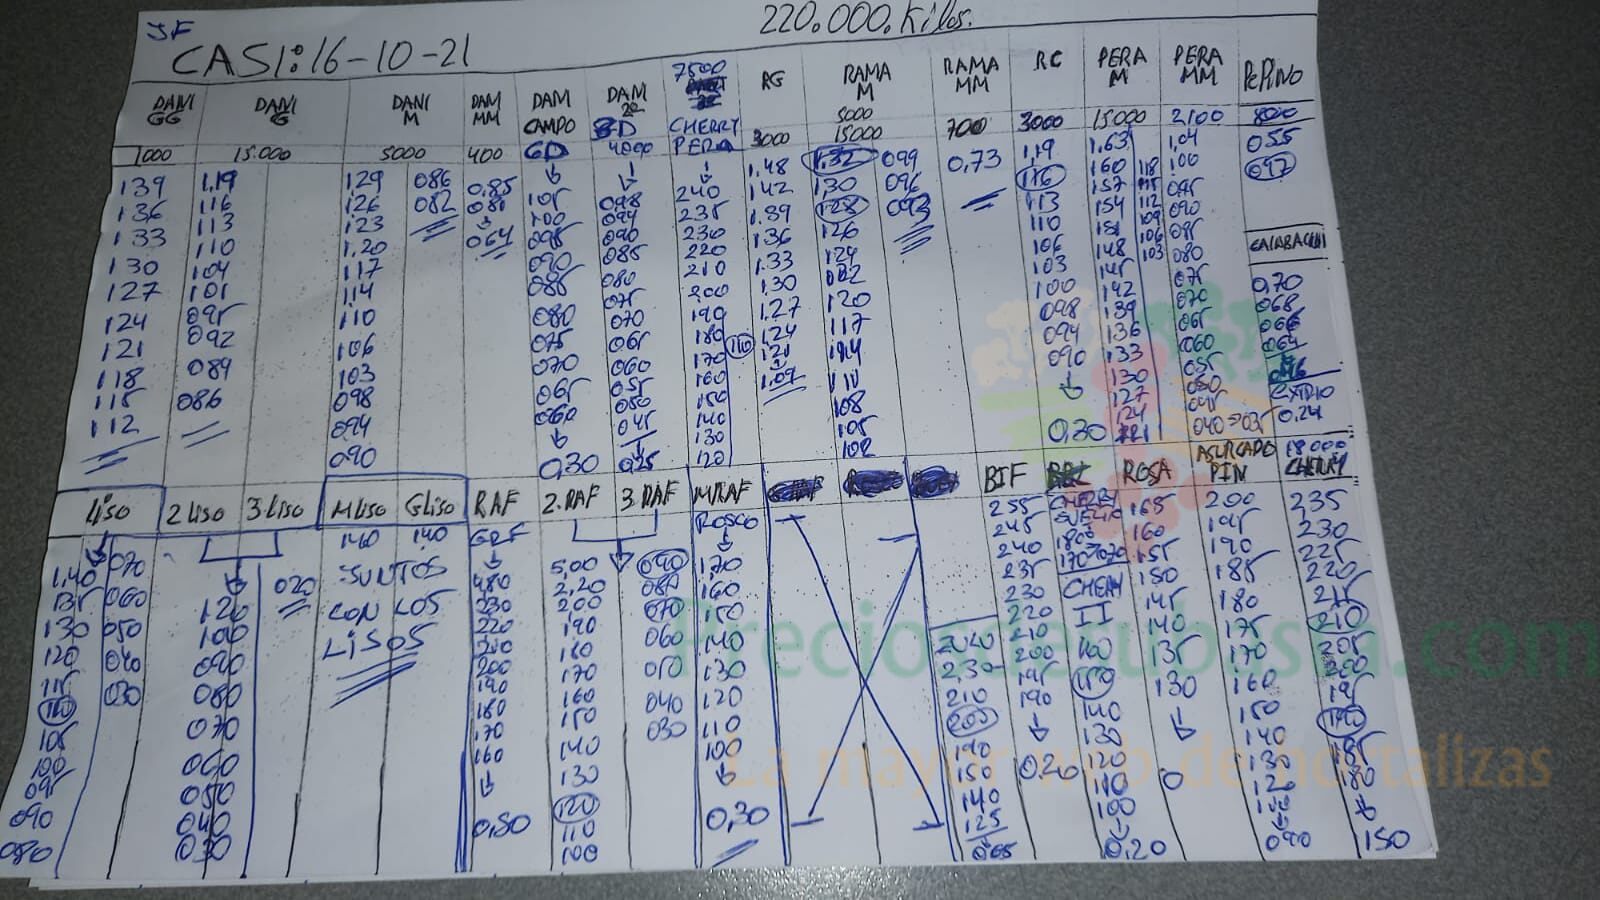 JF
220.000.Kilos.
CASI: 16-10-21
DANI GG
DANI G
DANI M
DAM MM
DAM CAMPO GD
DAM
7500
CHERRY PERA
RG
RAMA M
RAMA MM
RC
PERA M
PERA MM
PEPINO
1000
15.000
5000
400
4000
3000
5000
15000
700
3000
15000
2100
800
139 1,19 129 086 0,85
136 116 126 082 081
133 113 123 064
130 110 1.20
127 104 117
124 101 114
121 095 110
118 092 106
115 089 103
112 086 098
094
090
105
100
095
090
085
080
075
070
065
060
0,30
098
094
090
085
080
075
070
065
060
055
050
045
025
240
235
230
220
210
200
190
180
170
160
150
140
130
120
1.48
142
1.39
136
1.33
130
1.27
124
121
1.09
110
1.32 099
130 096
128 093
126
124
122
120
117
114
110
108
105
102
0,73
1,19
116
113
110
106
103
100
098
094
090
0,30
1.63
160 118
157 115
154 112
151 109
148 106
145 103
142
139
136
133
130
127
124
121
1,04
100
095
090
085
080
075
070
065
060
055
050
045
040 035
055
047
CALABACIN
0,70
068
066
064
EXTRIO
0.24
LISO
2 LISO
3 LISO
M LISO
G LISO
RAF
2. RAF
3. RAF
M RAF
BIF
ROSA
ASURCADO PIN
18.000 CHERRY
1,40 070
135 060
130 050
120 040
115 030
110
105
100
095
090
080
120
100
090
080
070
060
050
040
030
020
140 140
JUNTOS
CON LOS
LISOS
230
220
210
200
190
180
170
160
0,50
5,00
2,20
200
190
180
170
160
150
140
130
120
110
100
090
080
070
060
050
040
030
ROSCO
170
160
150
140
130
120
110
100
0,30
2,30
210
205
190
150
140
125
065
255
245
240
235
230
220
210
200
195
190
020
CHERRY
SUELTO
180
170 070
CHERRY
II
160
150
140
130
120
110
100
0,20
165
160
155
150
145
140
135
130
0
200
195
190
185
180
175
170
160
150
140
130
120
100
090
235
230
225
220
215
210
205
200
195
190
185
180
150
Preciosdesubasta.com
La mayor web de hortalizas